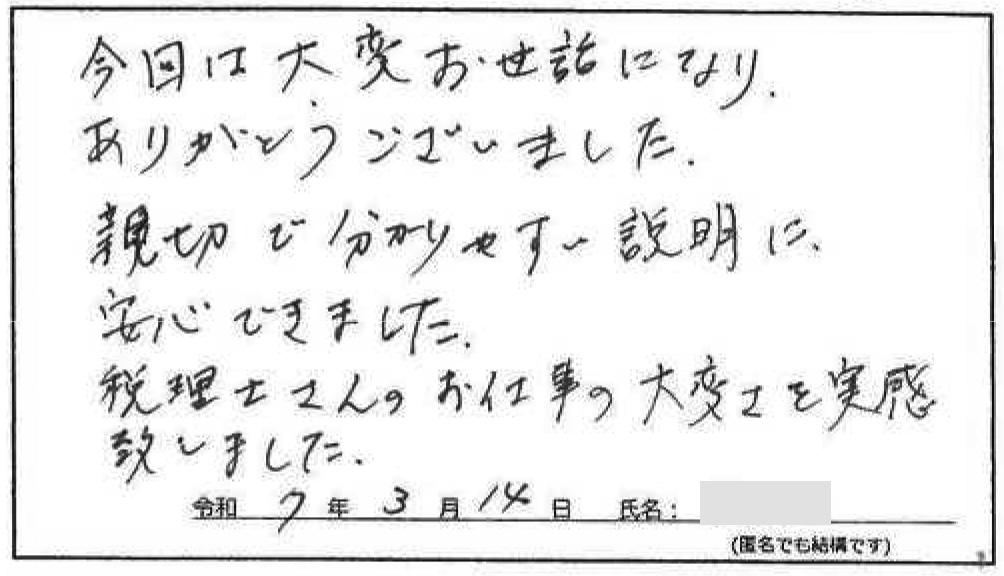 今回は大変お世話になり、
ありがとうございました。
親切で分かりやすい説明に、
安心できました。
税理士さんのお仕事の大変さを実感
致しました。
令和 7 年 3 月 14 日 氏名：
(匿名でも結構です)